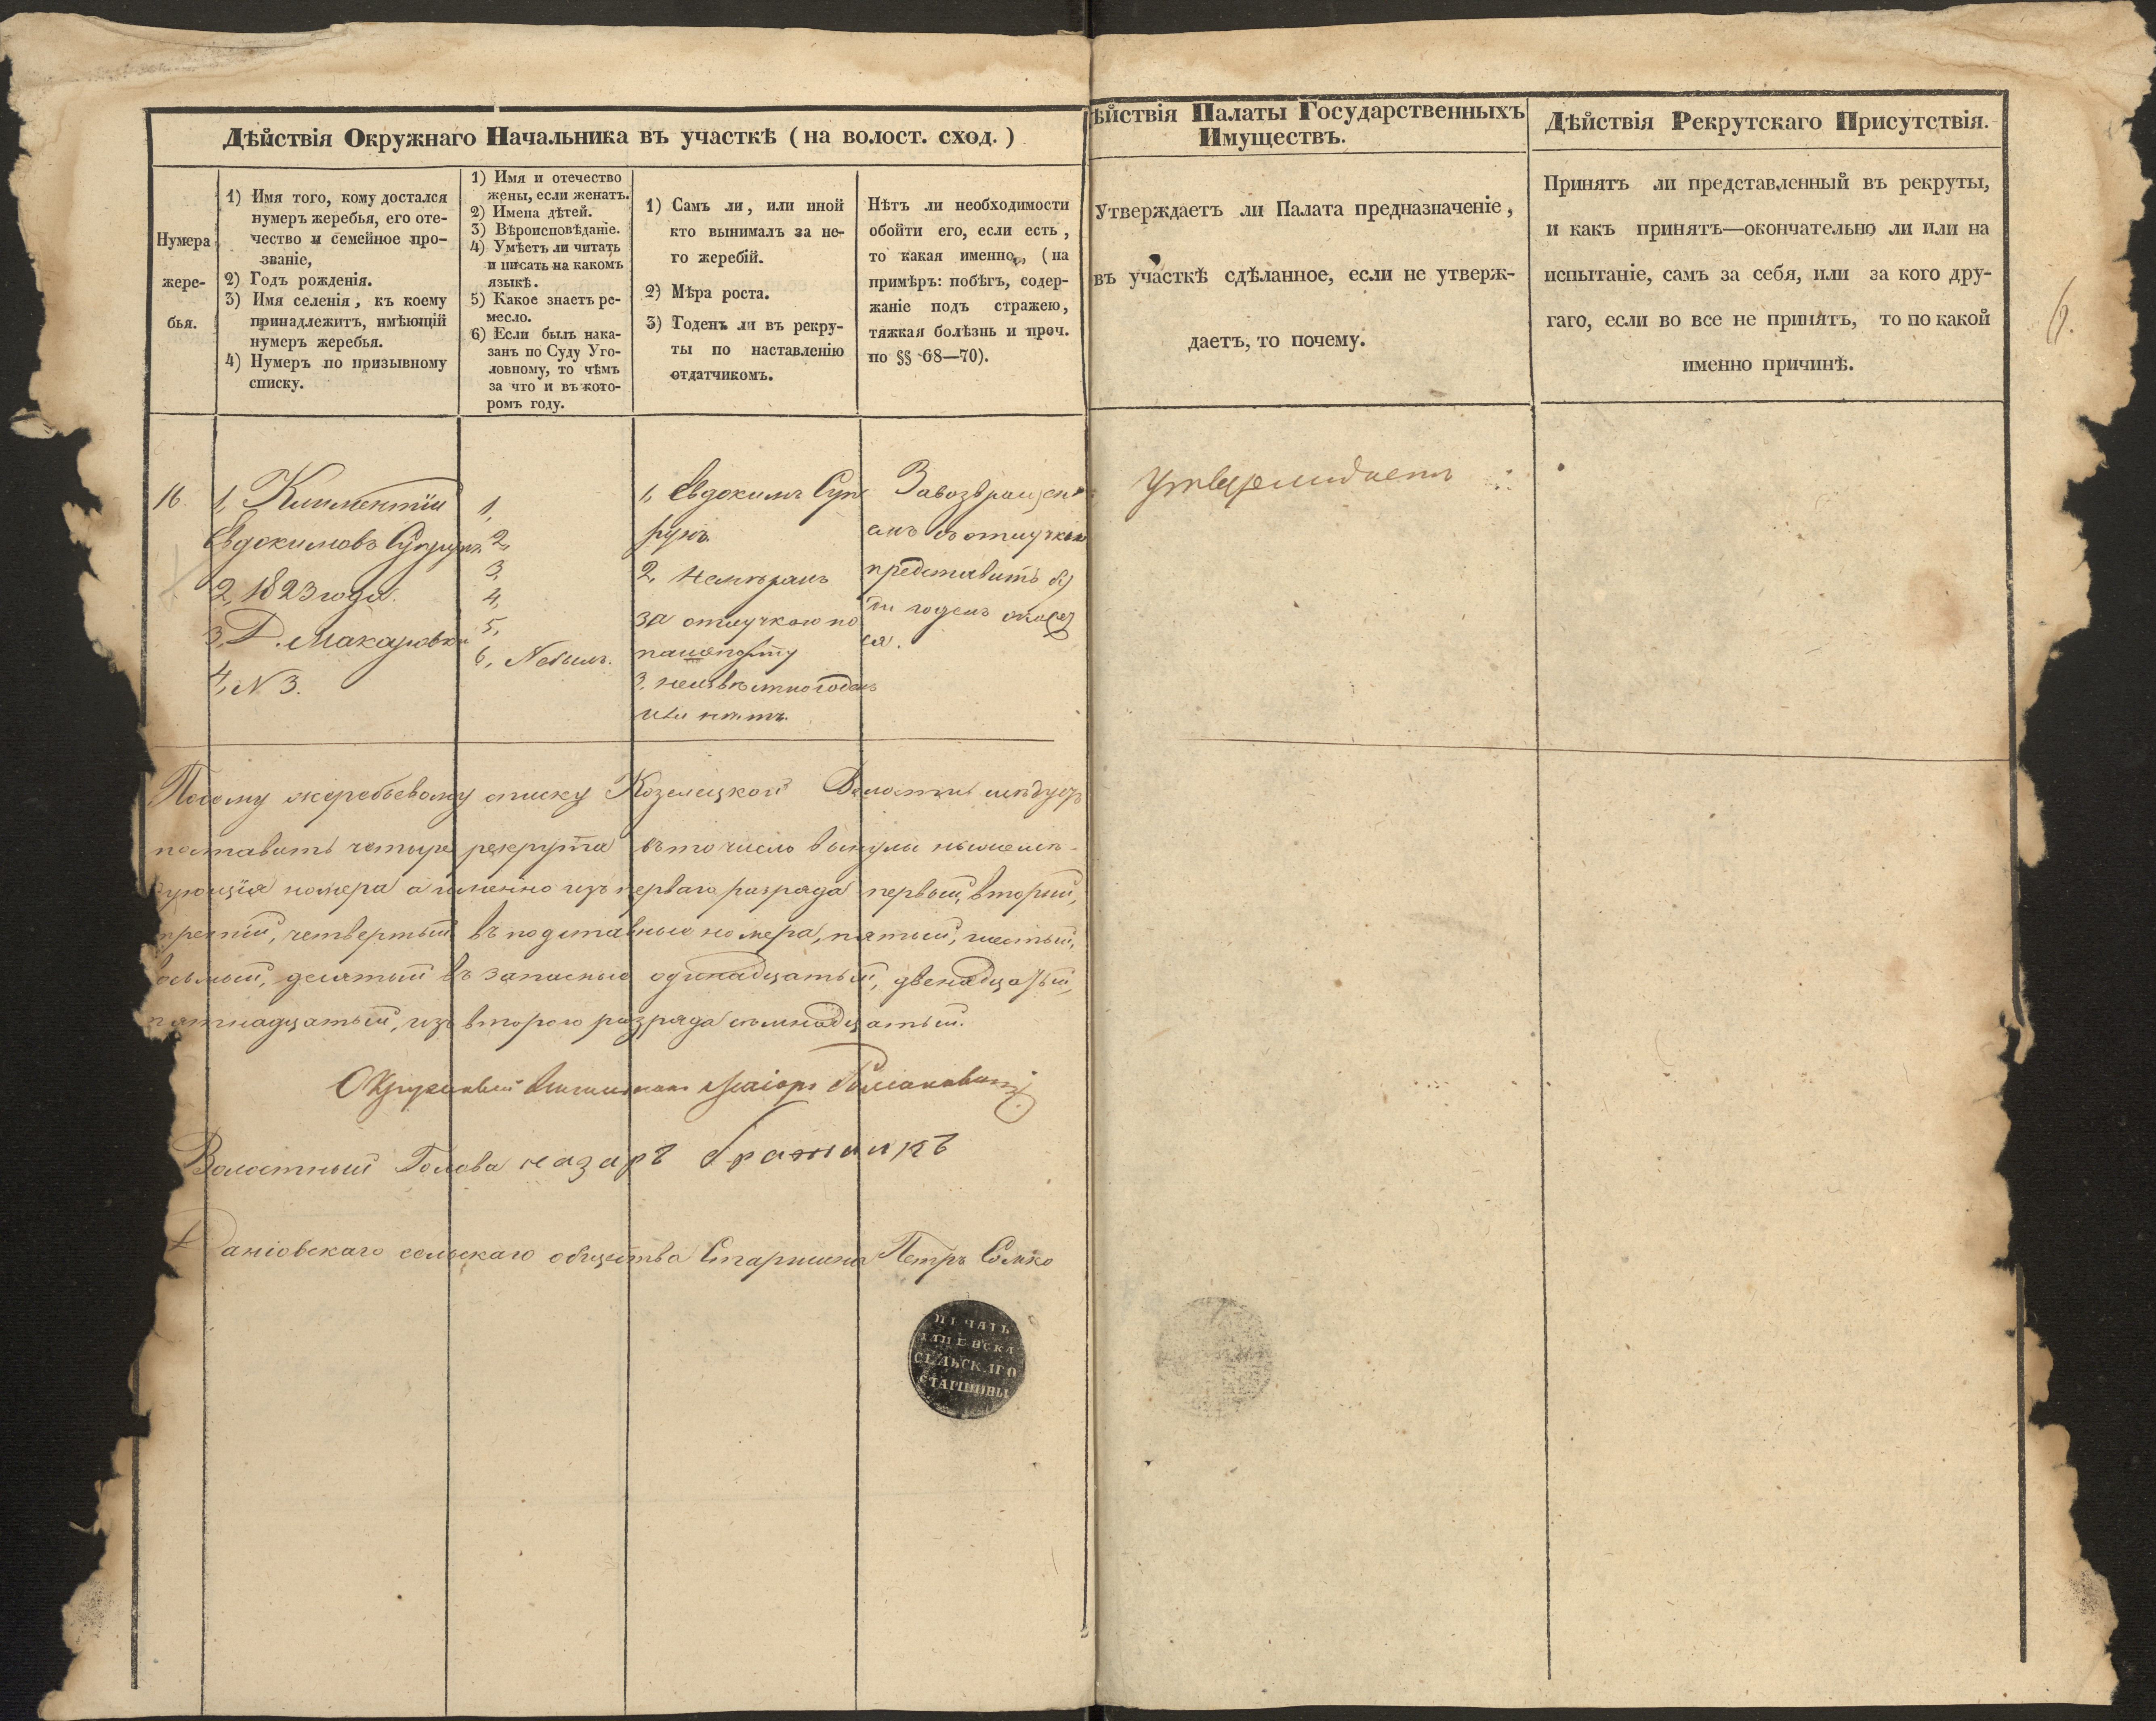 Дѣйствія Окружнаго Начальника въ участкѣ (на волост. сход.)
Нумера
жере-
бья.
1) Имя того, кому достался
нумеръ жеребья, его оте-
чество и семейное про-
званіе,
2) Годъ рожденія.
3) Имя селенія, къ коему
принадлежитъ, имѣющій
нумеръ жеребья.
4) Нумеръ по призывному
списку.
1) Имя и отечество
жены, если женатъ.
2) Имена дѣтей.
3) Вѣроисповѣданіе.
4) Умѣетъ ли читать
и писать на какомъ
языкѣ.
5) Какое знаетъ ре-
месло.
6) Если былъ нака-
занъ по Суду Уго-
ловному, то чѣмъ
за что и въ кото-
ромъ году.
1) Самъ ли, или иной
кто вынималъ за не-
го жеребій.
2) Мѣра роста.
3) Годенъ ли въ рекру-
ты по наставленію
отдатчикомъ.
Нѣтъ ли необходимости
обойти его, если есть,
то какая именно, (на
примѣръ: побѣгъ, содер-
жаніе подъ стражею,
тяжкая болѣзнь и проч.
по §§ 68—70).
16.
1, Климентій
Евдокимовъ Супрунъ
2, 1823 года.
3, Д. Макаровки
4, N 3.
1,
2,
3,
4,
5,
6, Небылъ.
1, Евдокимъ Суп
рунъ
2, Немѣранъ
за отлучкою по
пашепорту
3, неизвѣстно годенъ
или нѣтъ.
Завозвращені
емъ съ отлучки
представить
ли годенъ
ся.
Посему жеребьевому списку Козелецкой Волости слѣдуетъ
поставить четыре рекрута въ то число вынулы нижеслѣ-
дующія номера а именно изъ перваго разряда первый, вторый,
третій, четвертый въ подставные номера, пятый, шестый,
восьмый, десятый въ запасные одинадцатый, двенадцатый,
пятнадцатый, изъ второго разряда семнадцатый.
Окружный Начальникъ Маіоръ
Волостный Голова назаръ бражникъ
Даніовскаго сельскаго общества Старшина Петръ Сомко
ПЕЧАТЬ
ДАНЕВСКА
СЕЛЬСКАГО
СТАРШИНЫ
ѣйствія Палаты Государственныхъ
Имуществъ.
Утверждаетъ ли Палата предназначеніе,
въ участкѣ сдѣланное, если не утверж-
даетъ, то почему.
Утверждаетъ
Дѣйствія Рекрутскаго Присутствія.
Принятъ ли представленный въ рекруты,
и какъ принятъ—окончательно ли или на
испытаніе, самъ за себя, или за кого дру-
гаго, если во все не принятъ, то по какой
именно причинѣ.
6.